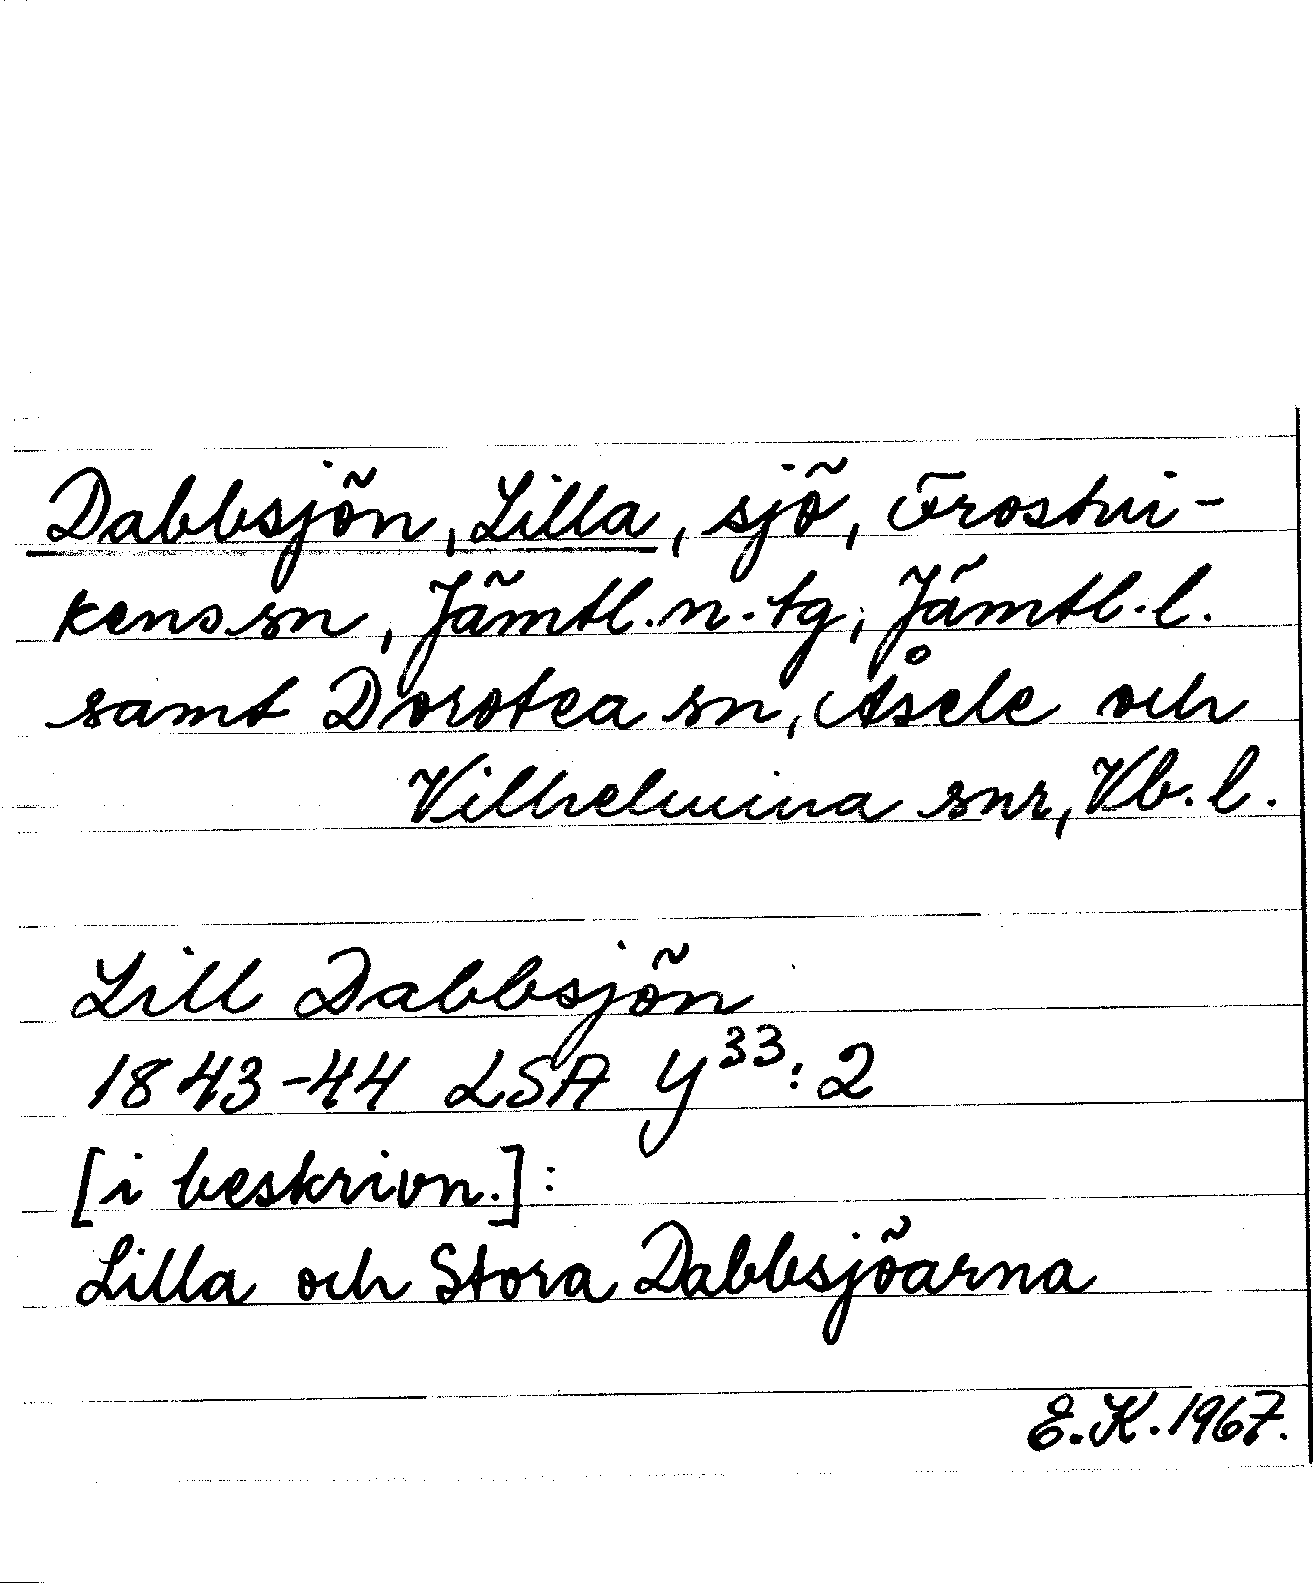 Dabbsjön, Lilla, sjö, Frostvi-
kens sn, Jämtl. n. tg, Jämtl. l.
samt Dorotea sn, Åsele och
Vilhelmina snr, Vb. l.
Lill Dabbsjön
1843-44 LSA Y³³: 2
[i beskrivn.]:
Lilla och Stora Dabbsjöarna
E.K. 1967.